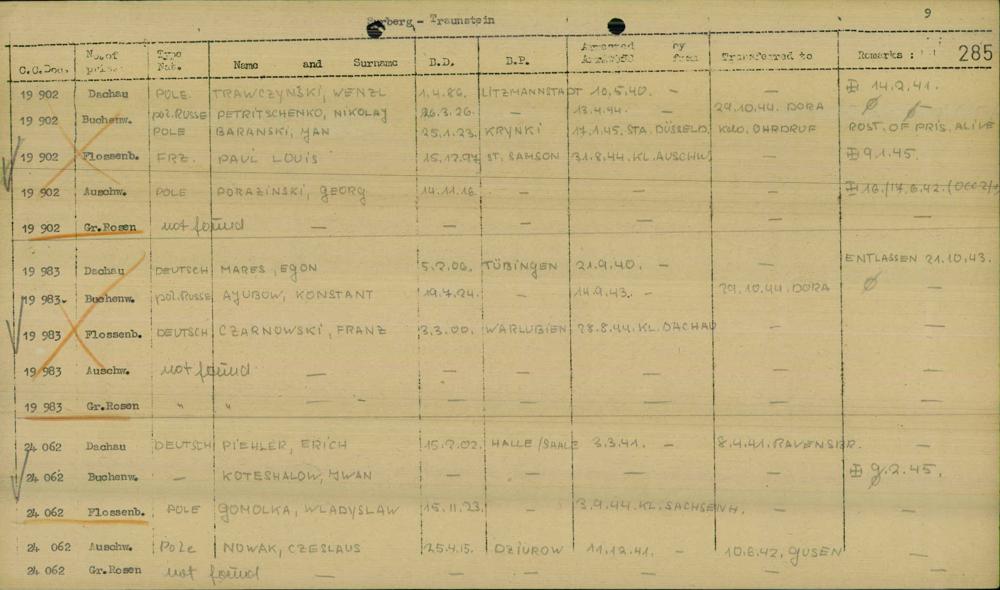 Surberg - Traunstein 9
C.C.Doc. No.of Type Nat. Name and Surname B.D. B.P. Arrested by from Transferred to Remarks : 285
19 902 Dachau POLE. TRAWCZYŃSKI, WENZL 1.4.86. LITZMANNSTADT 10.5.40. - — 14.2.41.
19 902 Buchenw. pol.RUSSE PETRITSCHENKO, NIKOLAY 26.3.26. — 13.4.44. 29.10.44. DORA
19 902 POLE BARANSKI, JAN 25.1.23. KRYNKI 17.1.45. STA. DÜSSELD. Kdo. OHRDRUF ROST. OF PRIS. ALIVE
19 902 Flossenb. FRZ. PAUL LOUIS 15.12.97. ST. SAMSON 31.8.44. KL. AUSCHW. — 9.1.45.
19 902 Auschw. POLE PORAZINSKI, GEORG 14.11.16. — — — 16./17.6.42.
19 902 Gr.Rosen not found — — — — — —
19 983 Dachau DEUTSCH MARES, EGON 5.2.06. TÜBINGEN 21.9.40. — — ENTLASSEN 21.10.43.
19 983 Buchenw. pol.RUSSE AYUBOW, KONSTANT 19.7.24. — 14.9.43. - 29.10.44. DORA
19 983 Flossenb. DEUTSCH CZARNOWSKI, FRANZ 3.3.00. WARLUBIEN 28.8.44. KL. DACHAU —
19 983 Auschw. not found — — — — — —
19 983 Gr.Rosen " " — — — — —
24 062 Dachau DEUTSCH PIEHLER, ERICH 15.2.02. HALLE/SAALE 3.3.41. - 8.4.41. RAVENSBR. —
24 062 Buchenw. — KOTESHALOW, IWAN — — — — 9.2.45.
24 062 Flossenb. POLE GOMOLKA, WLADYSLAW 15.11.23. — 3.9.44. KL. SACHSENH. —
24 062 Auschw. Pole NOWAK, CZESLAUS 25.4.15. DZIUROW 11.12.41. - 10.6.42. GUSEN —
24 062 Gr.Rosen not found — — — — — —